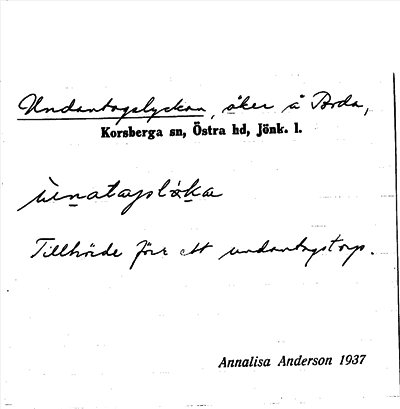 Undantagslyckan, åker å Borda,
Korsberga sn, Östra hd, Jönk. l.
ùnatagslỏ̀ka
Tillhörde förr ett undantagstorp.
Annalisa Anderson 1937